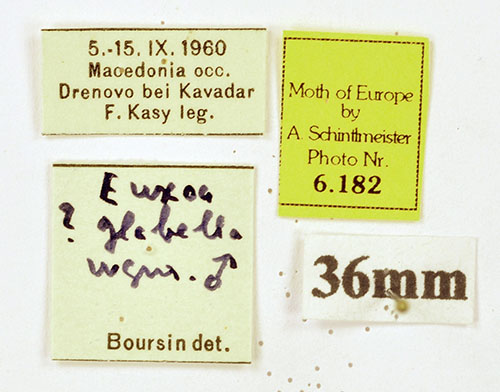 5.-15. IX. 1960
Macedonia occ.
Drenovo bei Kavadar
F. Kasy leg.
Moth of Europe
by
A. Schintlmeister
Photo Nr.
6.182
Euxoa
? glabella
wgnr. ♂
Boursin det.
36mm